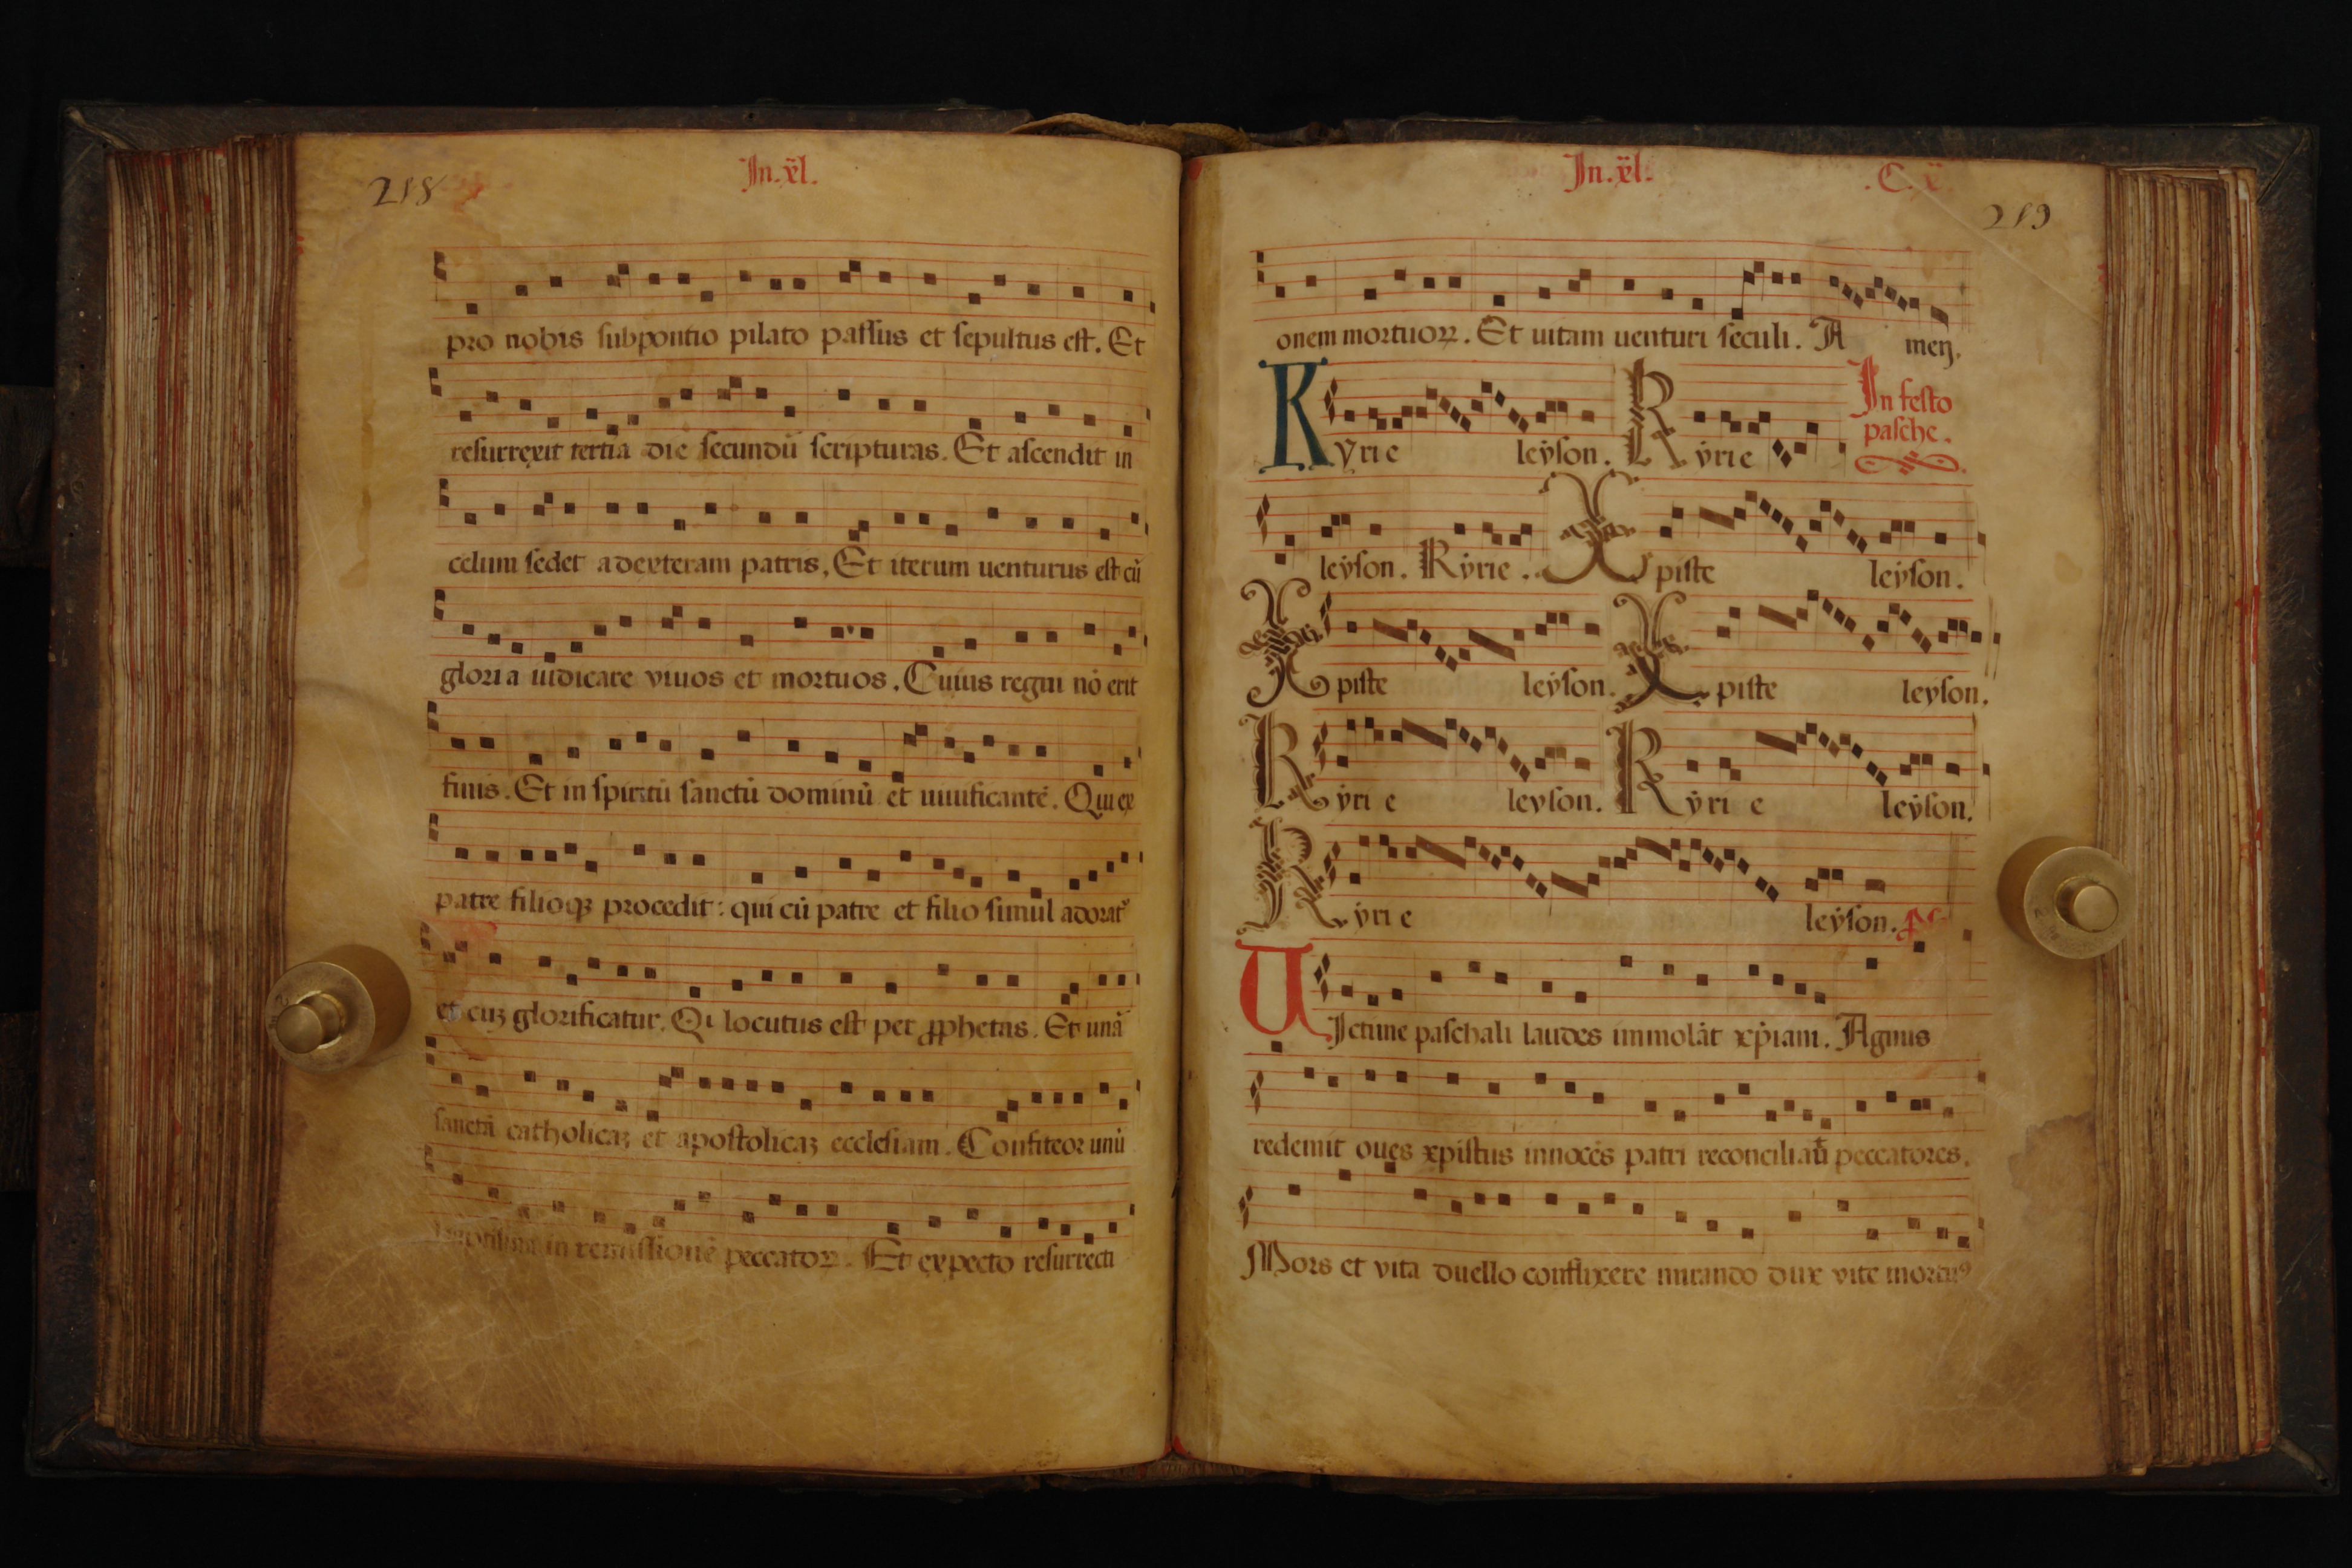 218
In.xl.
pro nobis subpontio pilato passus et sepultus est. Et
resurrexit tertia die secundū scripturas. Et ascendit in
celum sedet adexteram patris. Et iterum uenturus est cū
gloria iudicare viuos et mortuos. Cuius regni nō erit
finis. Et in spiritū sanctū dominū et uiuificantē. Qui ex
patre filioqꝫ procedit: qui cū patre et filio simul adorat᷑
et cuꝫ glorificatur. Qi locutus est per ꝓphetas. Et unā
sanctā catholicaꝫ et apostolicaꝫ ecclesiam. Confiteor unū
in remissionē peccatoꝝ. Et expecto resurrecti
In.xl.
.C.x.
219
onem mortuoꝝ. Et uitam uenturi seculi. A men.
Kyrie leyson. Kyrie
In festo
pasche.
leyson. Kyrie. Xpiste leyson.
Xpiste leyson. Xpiste leyson.
Kyrie leyson. Kyrie leyson.
Kyrie leyson.
UIctime paschali laudes immolāt xp̄iani. Agnus
redemit oues xpistus innocēs patri reconciliau̅ peccatores.
Mors et vita duello conflixere mirando dux vite mortuꝰ